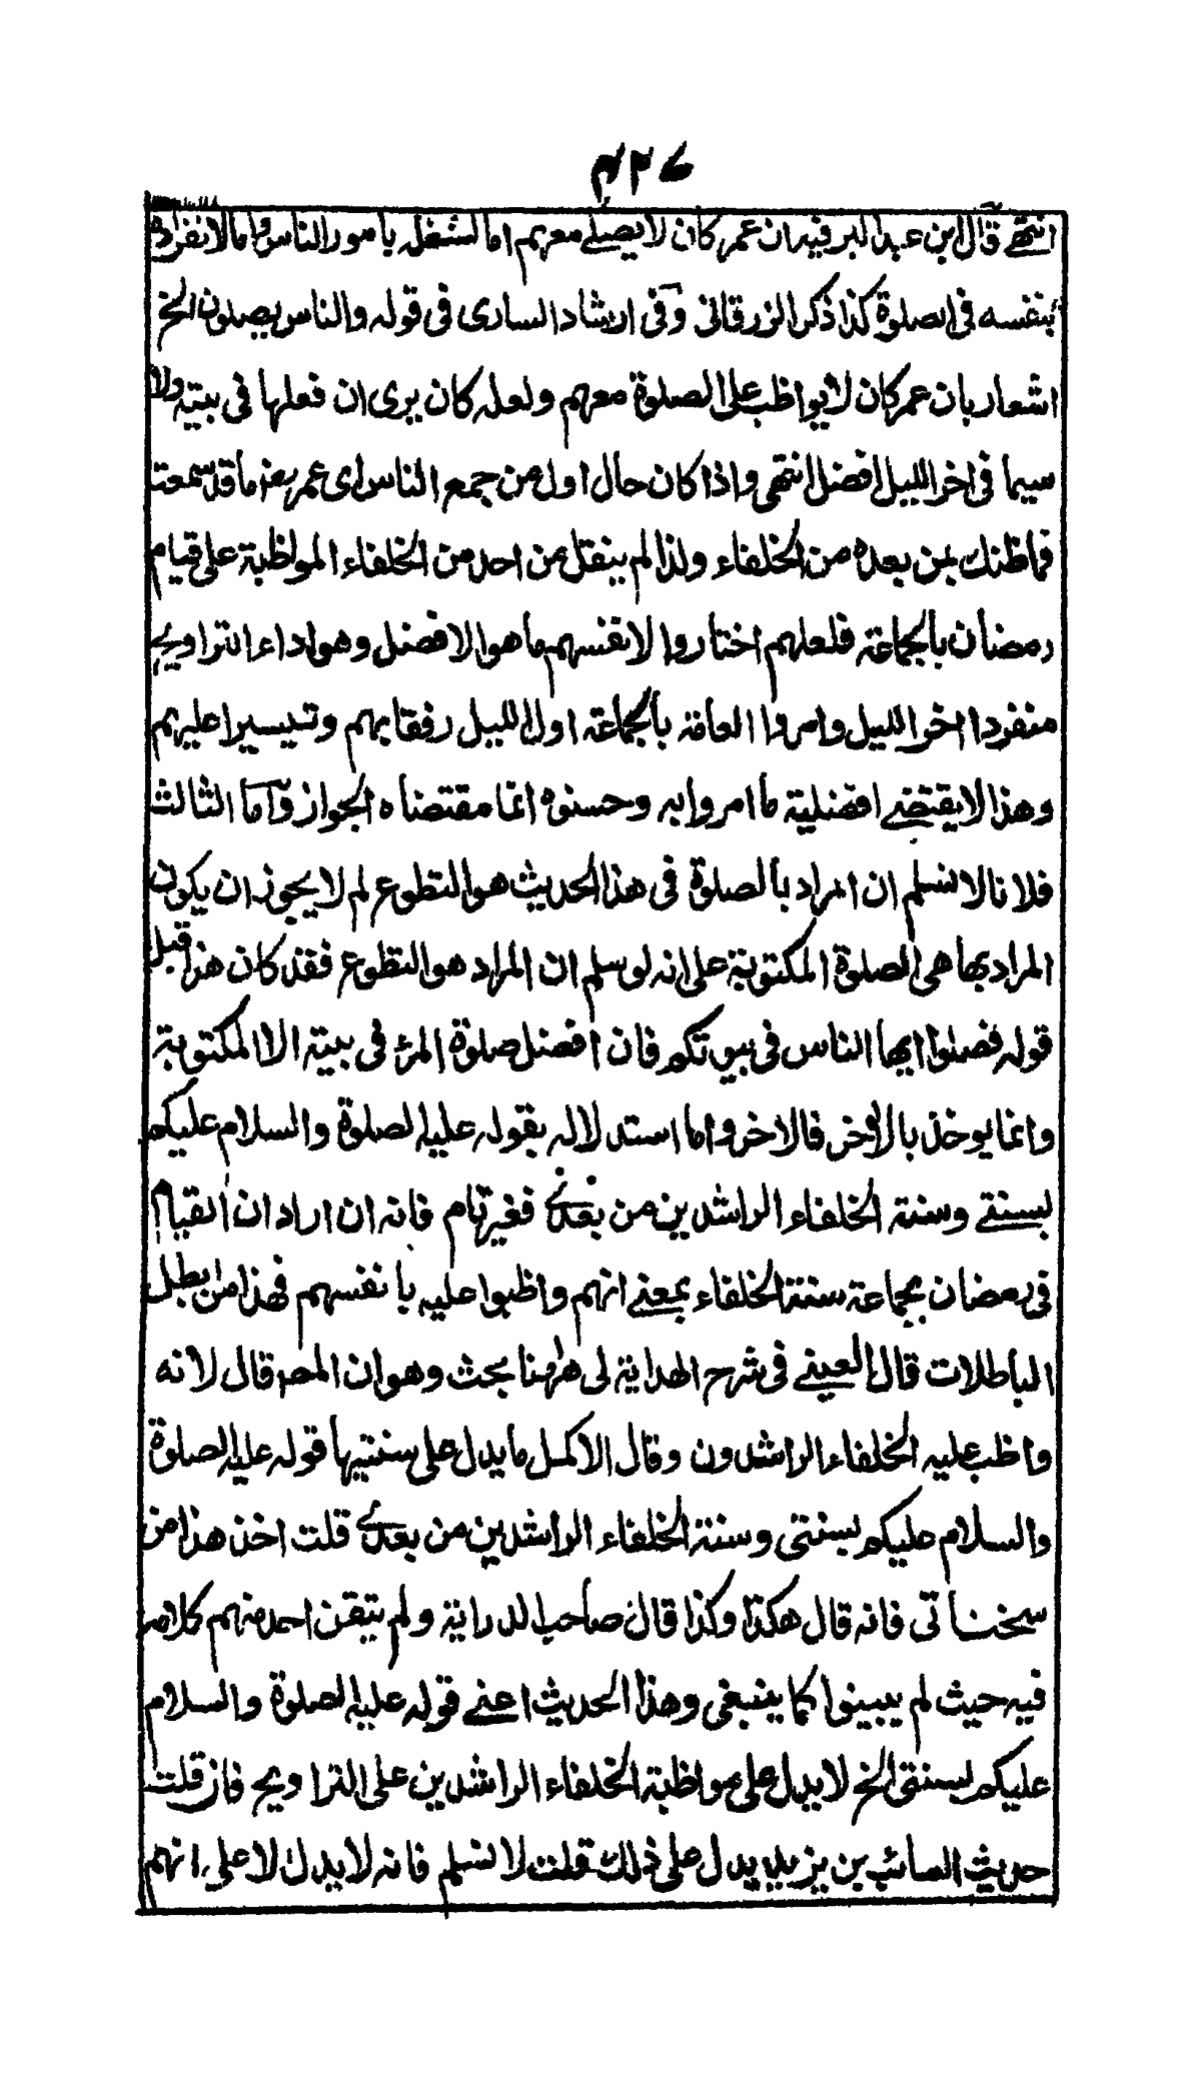 ۴۲۶
انتهى قال ابن عبد البر فيه ان عمر كان لا يصلے معهم اما لشغله بامور الناس واما لانفراده
بنفسه فى الصلوة كذا ذكر الزرقانى وفى ارشاد السارى فى قوله والناس يصلون الخ
اشعار بان عمر كان لا يواظب على الصلوة معهم ولعله كان يرى ان فعلها فى بيته ولا
سيما فى اخر الليل افضل انتهى واذا كان حال اول من جمع الناس اى عمر رضـ ما قد سمعت
فما ظنك بمن بعده من الخلفاء ولذا لم ينقل عن احد من الخلفاء المواظبة على قيام
رمضان بالجماعة فلعلهم اختاروا لانفسهم ما هو الافضل وهو اداء التراويح
منفردا اخر الليل وامروا العامة بالجماعة اول الليل رفقا بهم وتيسيرا عليهم
وهذا لا يقتضے افضلية ما امروا به وحسنوه انما مقتضاه الجواز واما الثالث
فلانا لا نسلم ان المراد بالصلوة فى هذا الحديث هو التطوع لم لا يجوز ان يكون
المراد بها هى الصلوة المكتوبة على انه لو سلم ان المراد هو التطوع فقد كان هذا قبل
قوله فصلوا ايها الناس فى بيوتكم فان افضل صلوة المرء فى بيته الا المكتوبة
وانما يوخذ بالاخر فالاخر واما استدلاله بقوله عليه الصلوة والسلام عليكم
بسنتے وسنة الخلفاء الراشدين من بعدے فغير تام فانه ان اراد ان القيام
فى رمضان بجماعة سنة الخلفاء بمعنے انهم واظبوا عليه بانفسهم فهذا من ابطل
الباطلات قال العينے فى شرح الهداية لى هٰهنا بحث وهو ان المصـ قال لانه
واظب عليه الخلفاء الراشدون وقال الاكمل ما يدل على سنتيها قوله عليه الصلوة
والسلام عليكم بسنتى وسنة الخلفاء الراشدين من بعدے قلت اخذ هذا من
سخناتى فانه قال هكذا وكذا قال صاحب الدراية ولم يتقن احد منهم كلامه
فيه حيث لم يبينوا كما ينبغى وهذا الحديث اعنے قوله عليه الصلوة والسلام
عليكم بسنتى الخ لا يدل على مواظبة الخلفاء الراشدين على التراويح فان قلت
حديث السائب بن يزيد يدل على ذلك قلت لا نسلم فانه لا يدل لا على انهم